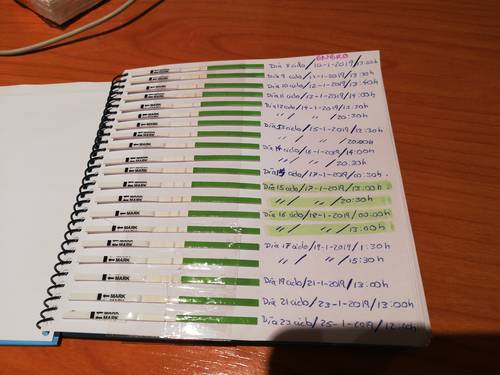 ENERO
Dia 8 ciclo/10-1-2019/13:00h
Dia 9 ciclo/11-1-2019/13:30h
Dia 10 ciclo/12-1-2019/13:40h
Dia 11 ciclo/13-1-2019/14:00h
Dia 12 ciclo/14-1-2019/12:30h
" / " / 20:30h
Dia 13 ciclo/15-1-2019/12:30h
" / " / 20:00h
Dia 14 ciclo/16-1-2019/14:00h
" / " / 20:30h
Dia 15 ciclo/17-1-2019/00:30h
Dia 15 ciclo/17-1-2019/13:00h
" / " / 20:30h
Dia 16 ciclo/18-1-2019/00:00h
" / " / 13:00h
Dia 17 ciclo/19-1-2019/1:30h
" / " / 15:30h
Dia 19 ciclo/21-1-2019/13:00h
Dia 21 ciclo/23-1-2019/13:00h
Dia 23 ciclo/25-1-2019/12:00h
MARK
MARK
MARK
MARK
MARK
MARK
MARK
MARK
MARK
MARK
MARK
MARK